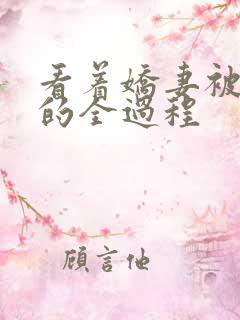 看着嬌妻被
的全過程
顧言他